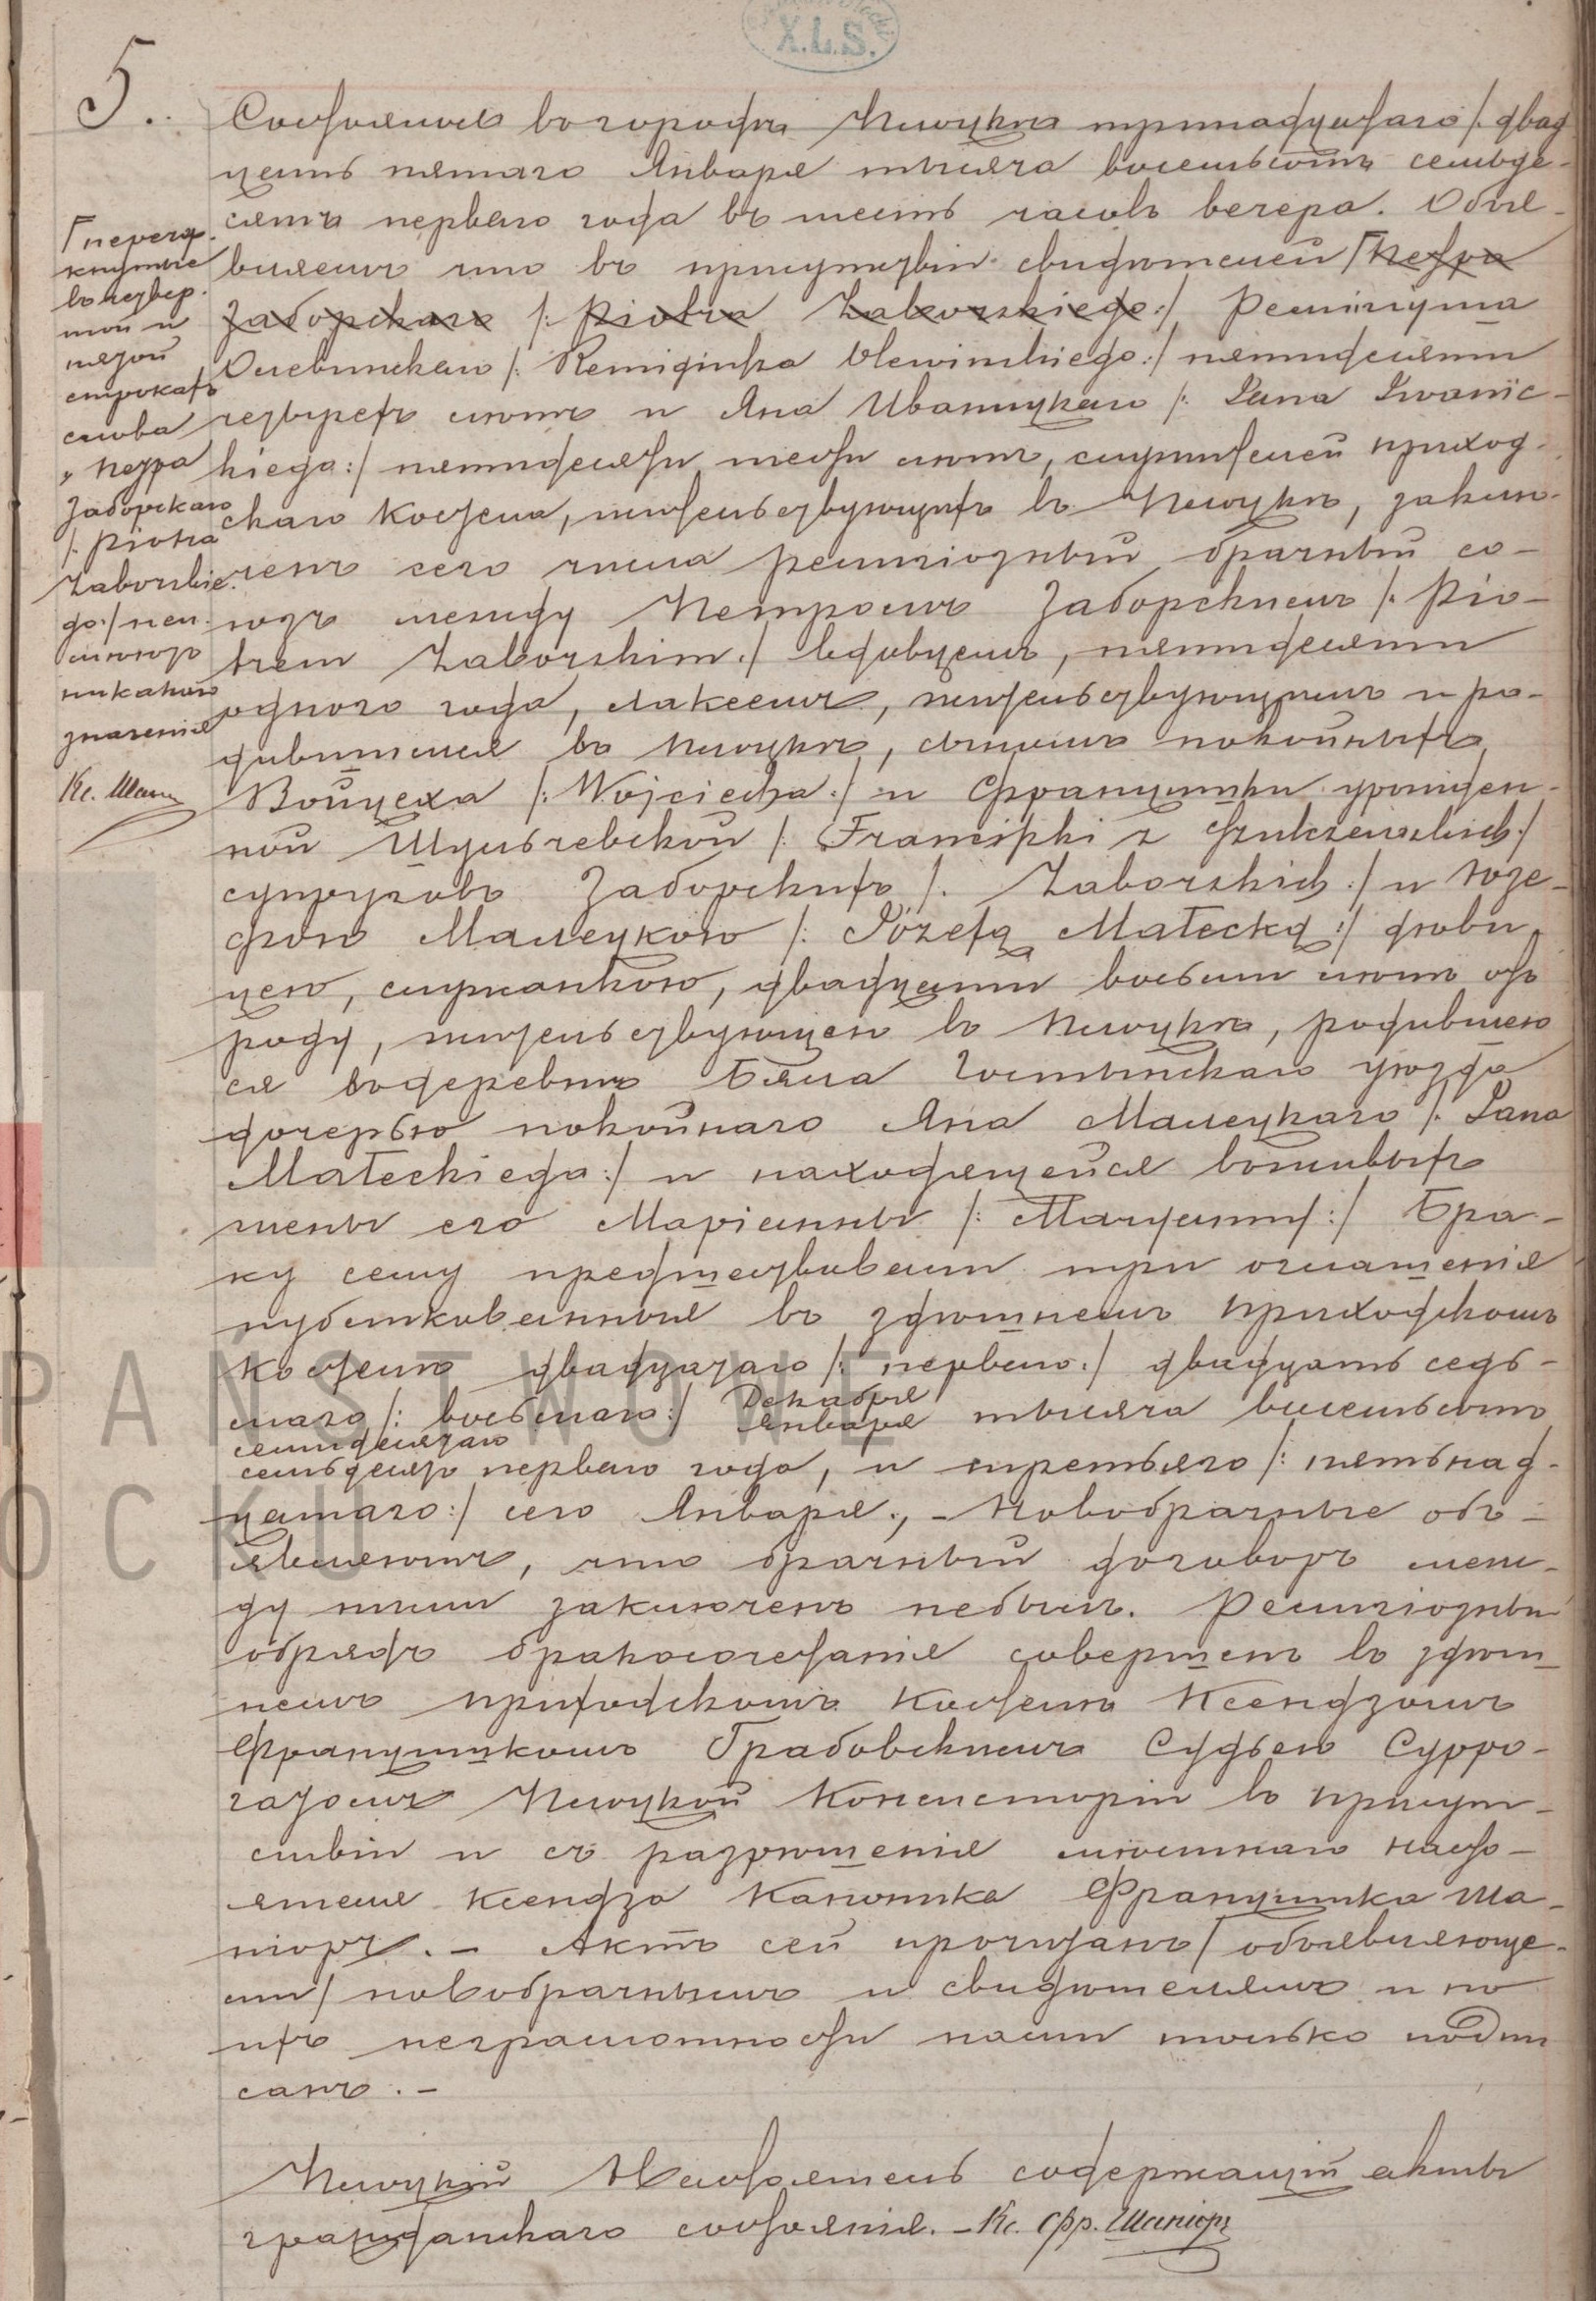 X.L.S.
5.
Состоялось въ городѣ Плоцкѣ тринадцатаго /: двад
цать пятаго Января тысяча восемьсотъ семьде-
сятъ перваго года въ шесть часовъ вечера. Объя-
вляемъ что въ присутствіи свидѣтелей Петра
Заборскаго /: Piotra Zaborskiego :/ Ремигіуша
Олевинскаго /: Remigiusza Olewinskiego :/ пятидесяти
четырехъ лѣтъ и Яна Иваницкаго /: Jana Iwanic-
kiego :/ пятидесяти шести лѣтъ, служителей приход-
скаго Костела, жительствующихъ въ Плоцкѣ, заклю-
ченъ сего числа религіозный брачный со-
юзъ между Петромъ Заборскимъ /: Pio-
trem Zaborskim :/ вдовцемъ, пятидесяти
одного года, лакеемъ, жительствующимъ и ро-
дившимся въ Плоцкѣ, сыномъ покойныхъ
Войцеха /: Wojciecha :/ и Францишки урожден-
ной Шульчевской /: Franciszki z Szulczewskich :/
супруговъ Заборскихъ /: Zaborskich :/ и Юзе-
фою Малецкою /: Józefą Małecką :/ дѣви
цею, служанкою, двадцати восьми лѣтъ отъ
роду, жительствующею въ Плоцкѣ, родившею
ся въ деревнѣ Бяла Гостынскаго уѣзда
дочерью покойнаго Яна Малецкаго /: Jana
Małeckiego :/ и находящейся въ живыхъ
жены его Маріанны /: Маryanny :/ Бра-
ку сему предшествовали три оглашенія
публикованныя въ здѣшнемъ приходскомъ
Костелѣ двадцатаго /: перваго :/ двадцать седь-
маго /: восьмаго :/ Декабря Января тысяча восемьсотъ
семидесятаго
семьдесятъ перваго года, и третьяго /: пятьнад-
цатаго :/ сего Января, - Новобрачные объ-
являютъ, что брачный договоръ меж-
ду ними заключенъ небылъ. Религіозный
обрядъ бракосочетанія совершенъ въ здѣш
немъ приходскомъ Костелѣ Ксендзомъ
Францишкомъ Грабовскимъ Судьею Сурро-
гатомъ Плоцкой Консисторіи въ присут-
ствіи и съ разрѣшенія мѣстнаго насто-
ятеля Ксендза Каноника Францишка Ша-
ніоръ. - Актъ сей прочитанъ / объявляюще-
ми / новобрачнымъ и свидѣтелямъ и по
ихъ неграмотности нами только подпи
санъ. -
Плоцкій Настоятель содержащій акты
гражданскаго состоянія. - Кс. Фр. Шаніоръ
Перечер-
кнутые
въ четвер-
той и
пятой
строкахъ
слова
„Петра
Заборскаго
/: Piotra
Zaborskie
go :/ неи-
мѣютъ
никакого
значенія
Кс. Шан
PAŃSTWOWE
OCKU